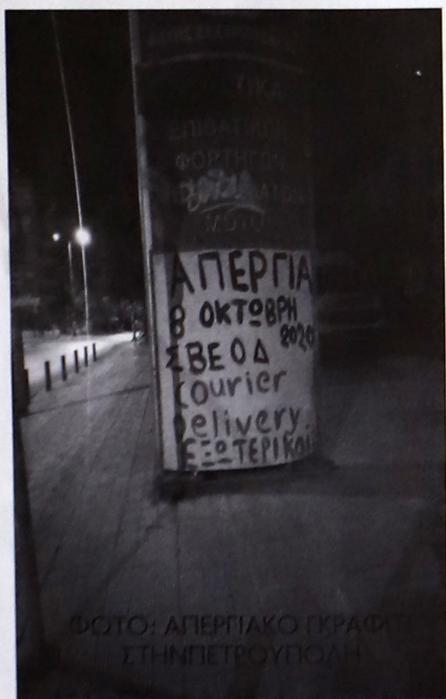 ΕΠΙΒΑΤΙΚΩΝ
ΦΟΡΤΗΓΩΝ
ΜΟΤΟ
ΑΠΕΡΓΙΑ
8 ΟΚΤΩΒΡΗ
2020
ΣΒΕΟΔ
Courier
Delivery
ΕΞΩΤΕΡΙΚΟΙ
ΦΩΤΟ: ΑΠΕΡΓΙΑΚΟ ΓΚΡΑΦΙΤΙ
ΣΤΗΝΠΕΤΡΟΥΠΟΛΗ